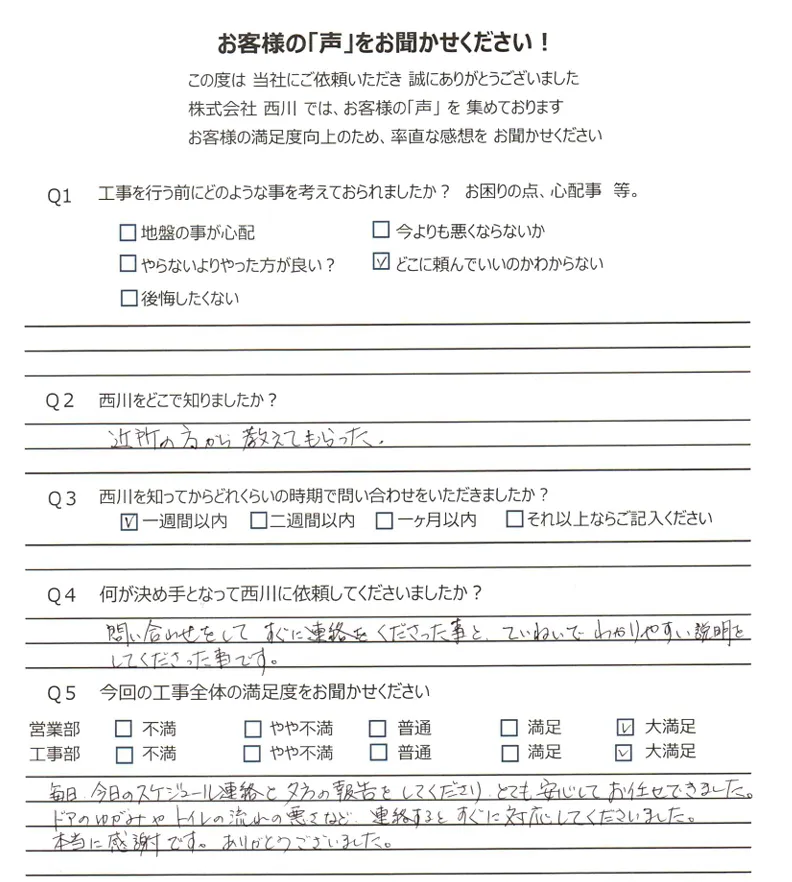 お客様の「声」をお聞かせください！
この度は 当社にご依頼いただき 誠にありがとうございました
株式会社 西川 では、お客様の「声」 を 集めております
お客様の満足度向上のため、率直な感想を お聞かせください
Q1 工事を行う前にどのような事を考えておられましたか？ お困りの点、心配事 等。
□地盤の事が心配 □今よりも悪くならないか
□やらないよりやった方が良い？ ☑どこに頼んでいいのかわからない
□後悔したくない
Q2 西川をどこで知りましたか？
近所の方から教えてもらった。
Q3 西川を知ってからどれくらいの時期で問い合わせをいただきましたか？
☑一週間以内 □二週間以内 □一ヶ月以内 □それ以上ならご記入ください
Q4 何が決め手となって西川に依頼してくださいましたか？
問い合わせをして すぐに連絡をくださった事と、ていねいで わかりやすい説明を
してくださった事です。
Q5 今回の工事全体の満足度をお聞かせください
営業部 □ 不満 □ やや不満 □ 普通 □ 満足 ☑ 大満足
工事部 □ 不満 □ やや不満 □ 普通 □ 満足 ☑ 大満足
毎日、今日のスケジュール連絡と夕方の報告をしてくださり、とても安心してお任せできました。
ドアのゆがみやトイレの流れの悪さなど、連絡するとすぐに対応してくださいました。
本当に感謝です。ありがとうございました。